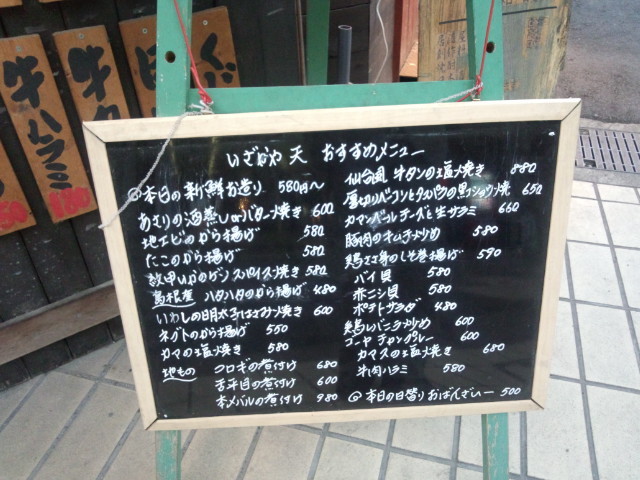 いざかや 天 おすすめメニュー
◎本日の新鮮お造り 580円〜
あさりの酒蒸しorバター焼き 600
地エビのから揚げ 580
たこのから揚げ 580
紋甲いかのゲソスパイス焼き 580
島根産 ハタハタのから揚げ 480
いわしの明太子はさみ焼き 600
ネブトのから揚げ 550
カマの塩焼き 580
地もの クロギの煮付け 680
舌平目の煮付け 600
本メバルの煮付け 980
仙台風 牛タンの塩焼き 880
厚切りベーコンとタスパラの黒コショウ焼 650
カマンベールチーズと生サラミ 660
豚肉のキムチ炒め 580
鶏ささ身のしそ巻揚げ 590
バイ貝 580
赤ニシ貝 580
ポテトサラダ 480
鶏レバニラ炒め 600
ゴーヤチャンプルー 600
カマスの塩焼き 680
牛肉ハラミ 580
◎本日の日替りおばんざい 500
牛ハラミ
牛タ